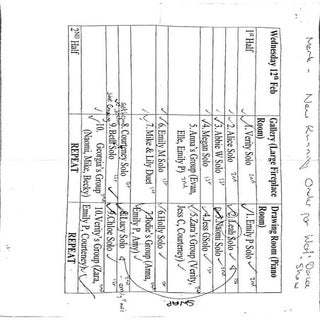 Mark - New Running Order for Wed Dance Show
Wednesday 12th Feb
Gallery (Large Fireplace Room)
Drawing Room (Piano Room)
1st Half
1. Verity Solo
2. Alice Solo 2nd
3. Abbie W Solo
4. Megan Solo 1st
5. Anna's Group (Ryan, Ellie, Emily P)
6. Emily M Solo
7. Mike & Lily Duet
8. Courtney Solo
9. Beth Solo
10. Georgia's Group (Naomi, Mike, Becky)
REPEAT
1. Emily P Solo
2. Leah Solo
3. Naomi Solo 2nd
4. Jess G Solo 1st
5. Zara's Group (Verity, Jess C, Courteney)
6. Holly Solo
7. Katie's Group (Anna, Emily P, Amy)
8. Lucy Solo
9. Chloe Solo
10. Verity's Group (Zara, Emily P, Courteney)
REPEAT
2ND Half
SWAP